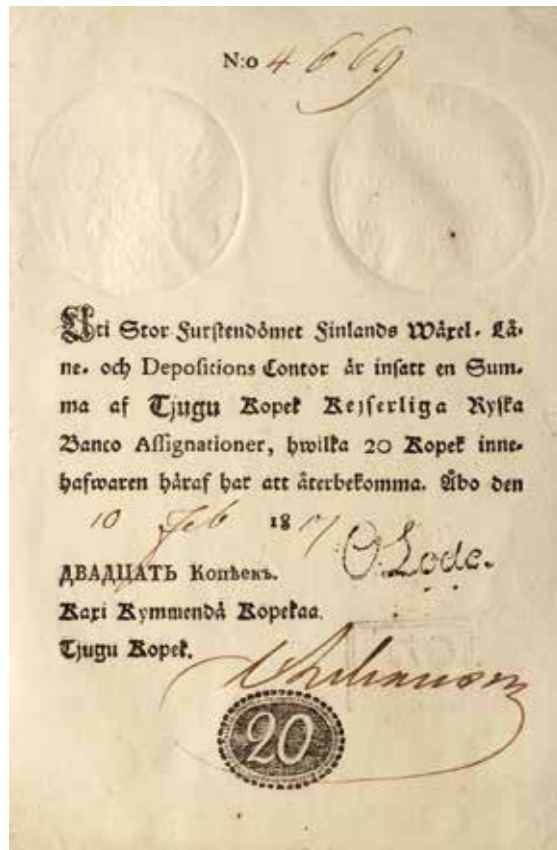 N:o 4669
Uti Stor Furstendömet Finlands Wäxel- Lå-
ne- och Depositions Contor är insatt en Sum-
ma af Tjugu Kopek Kejserliga Ryska
Banco Assignationer, hwilka 20 Kopek inne-
hafwaren häraf har att återbekomma. Åbo den
10 Feb 1817
O Lode.
ДВАДЦАТЬ Копѣекъ.
Kaxi Kymmendä Kopekaa.
Tjugu Kopek.
20